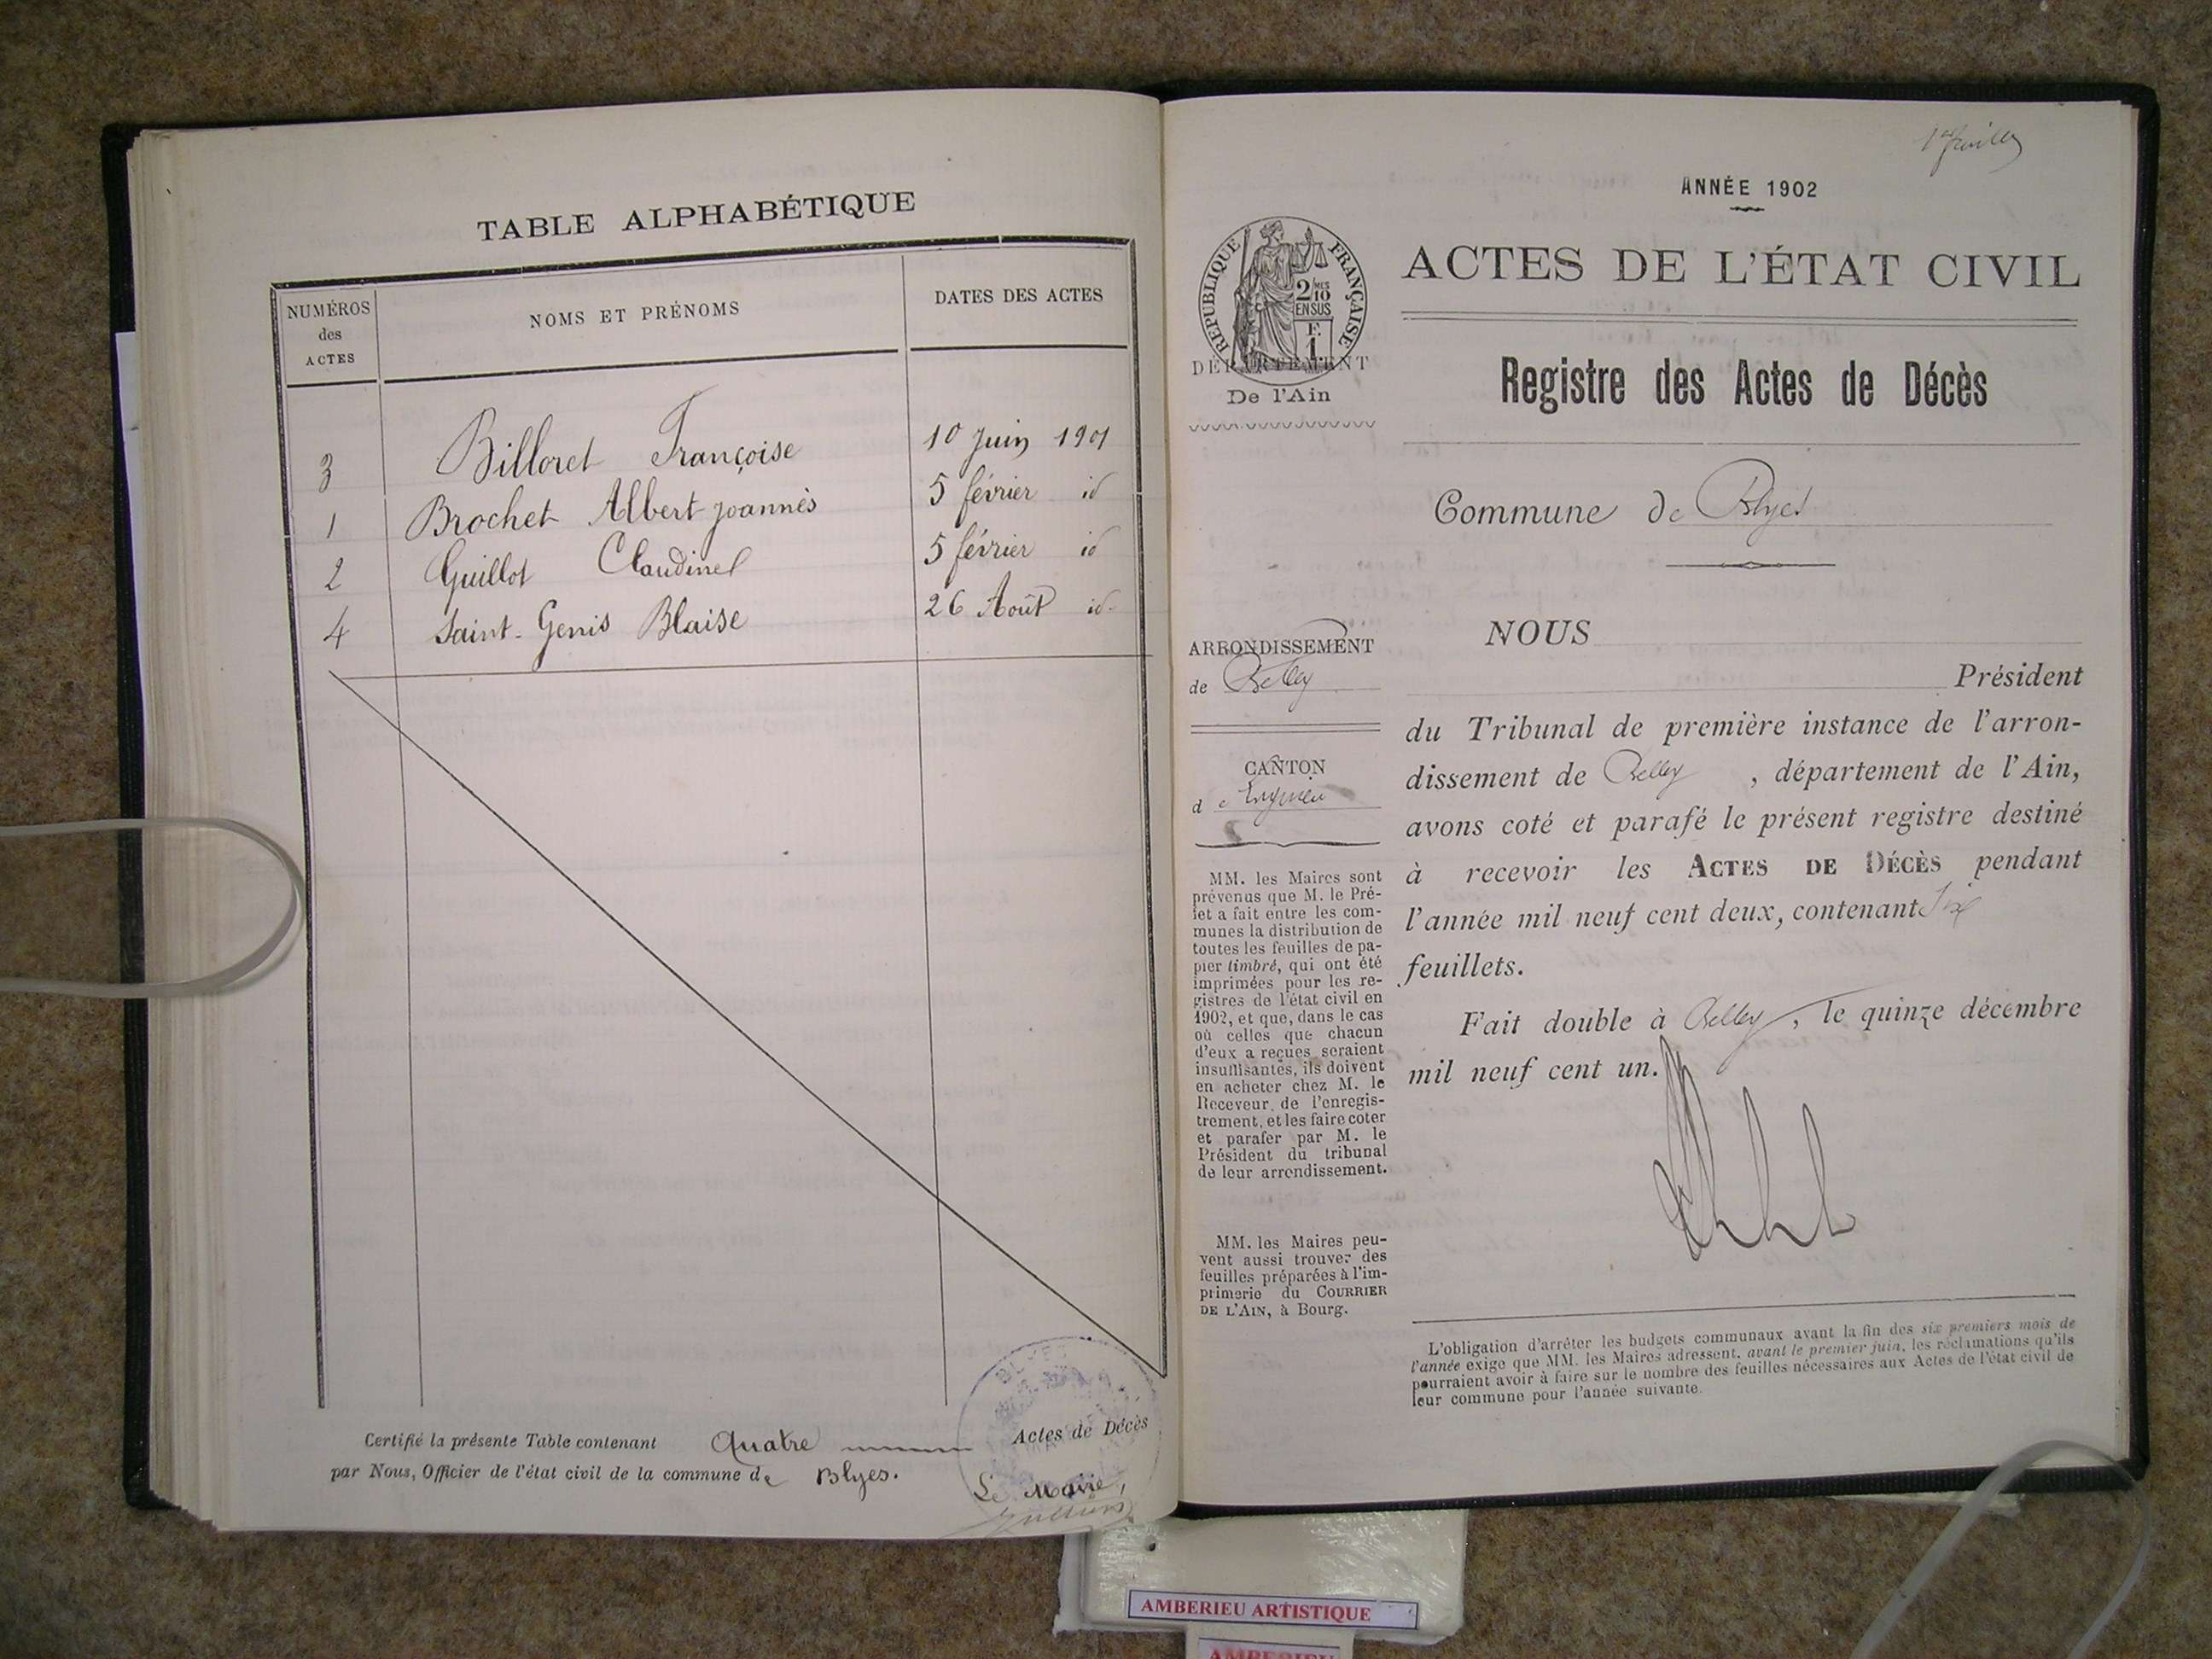 TABLE ALPHABÉTIQUE
NUMÉROS des ACTES
NOMS ET PRÉNOMS
DATES DES ACTES
3 Billoret Françoise 10 Juin 1901
1 Brochet Albert joannès 5 février id
2 Guillot Claudine 5 février id
4 Saint-Genis Blaise 26 Août id.
Certifié la présente Table contenant Quatre Actes de Décès
par Nous, Officier de l'état civil de la commune de Blyes.
Le Maire,
1er feuillet
ANNÉE 1902
RÉPUBLIQUE FRANÇAISE
2/10 MES
EN SUS
F.
1.
DÉPARTEMENT
De l'Ain
ACTES DE L'ÉTAT CIVIL
Registre des Actes de Décès
Commune de Blyes
ARRONDISSEMENT
de Belley
CANTON
de Lagnieu
MM. les Maires sont
prévenus que M. le Pré-
fet a fait entre les com-
munes la distribution de
toutes les feuilles de pa-
pier timbré, qui ont été
imprimées pour les re-
gistres de l'état civil en
1902, et que, dans le cas
où celles que chacun
d'eux a reçues seraient
insuffisantes, ils doivent
en acheter chez M. le
Receveur de l'enregis-
trement, et les faire coter
et parafer par M. le
Président du tribunal
de leur arrondissement.
MM. les Maires peu-
vent aussi trouver des
feuilles préparées à l'im-
primerie du COURRIER
DE L'AIN, à Bourg.
NOUS
Président
du Tribunal de première instance de l'arron-
dissement de Belley, département de l'Ain,
avons coté et parafé le présent registre destiné
à recevoir les ACTES DE DÉCÈS pendant
l'année mil neuf cent deux, contenant six
feuillets.
Fait double à Belley, le quinze décembre
mil neuf cent un.
L'obligation d'arrêter les budgets communaux avant la fin des six premiers mois de
l'année exige que MM. les Maires adressent, avant le premier juin, les réclamations qu'ils
pourraient avoir à faire sur le nombre des feuilles nécessaires aux Actes de l'état civil de
leur commune pour l'année suivante.
AMBERIEU ARTISTIQUE
AMBERIEU